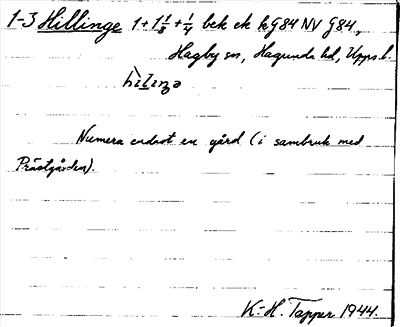 1-3 Hillinge 1+1⅓+¼ bek ek kG84 NV G84,
Hagby sn, Hagunda hd, Upps.l.
Numera endast en gård (i sambruk med
Prästgården).
K.-H. Tapper 1944.